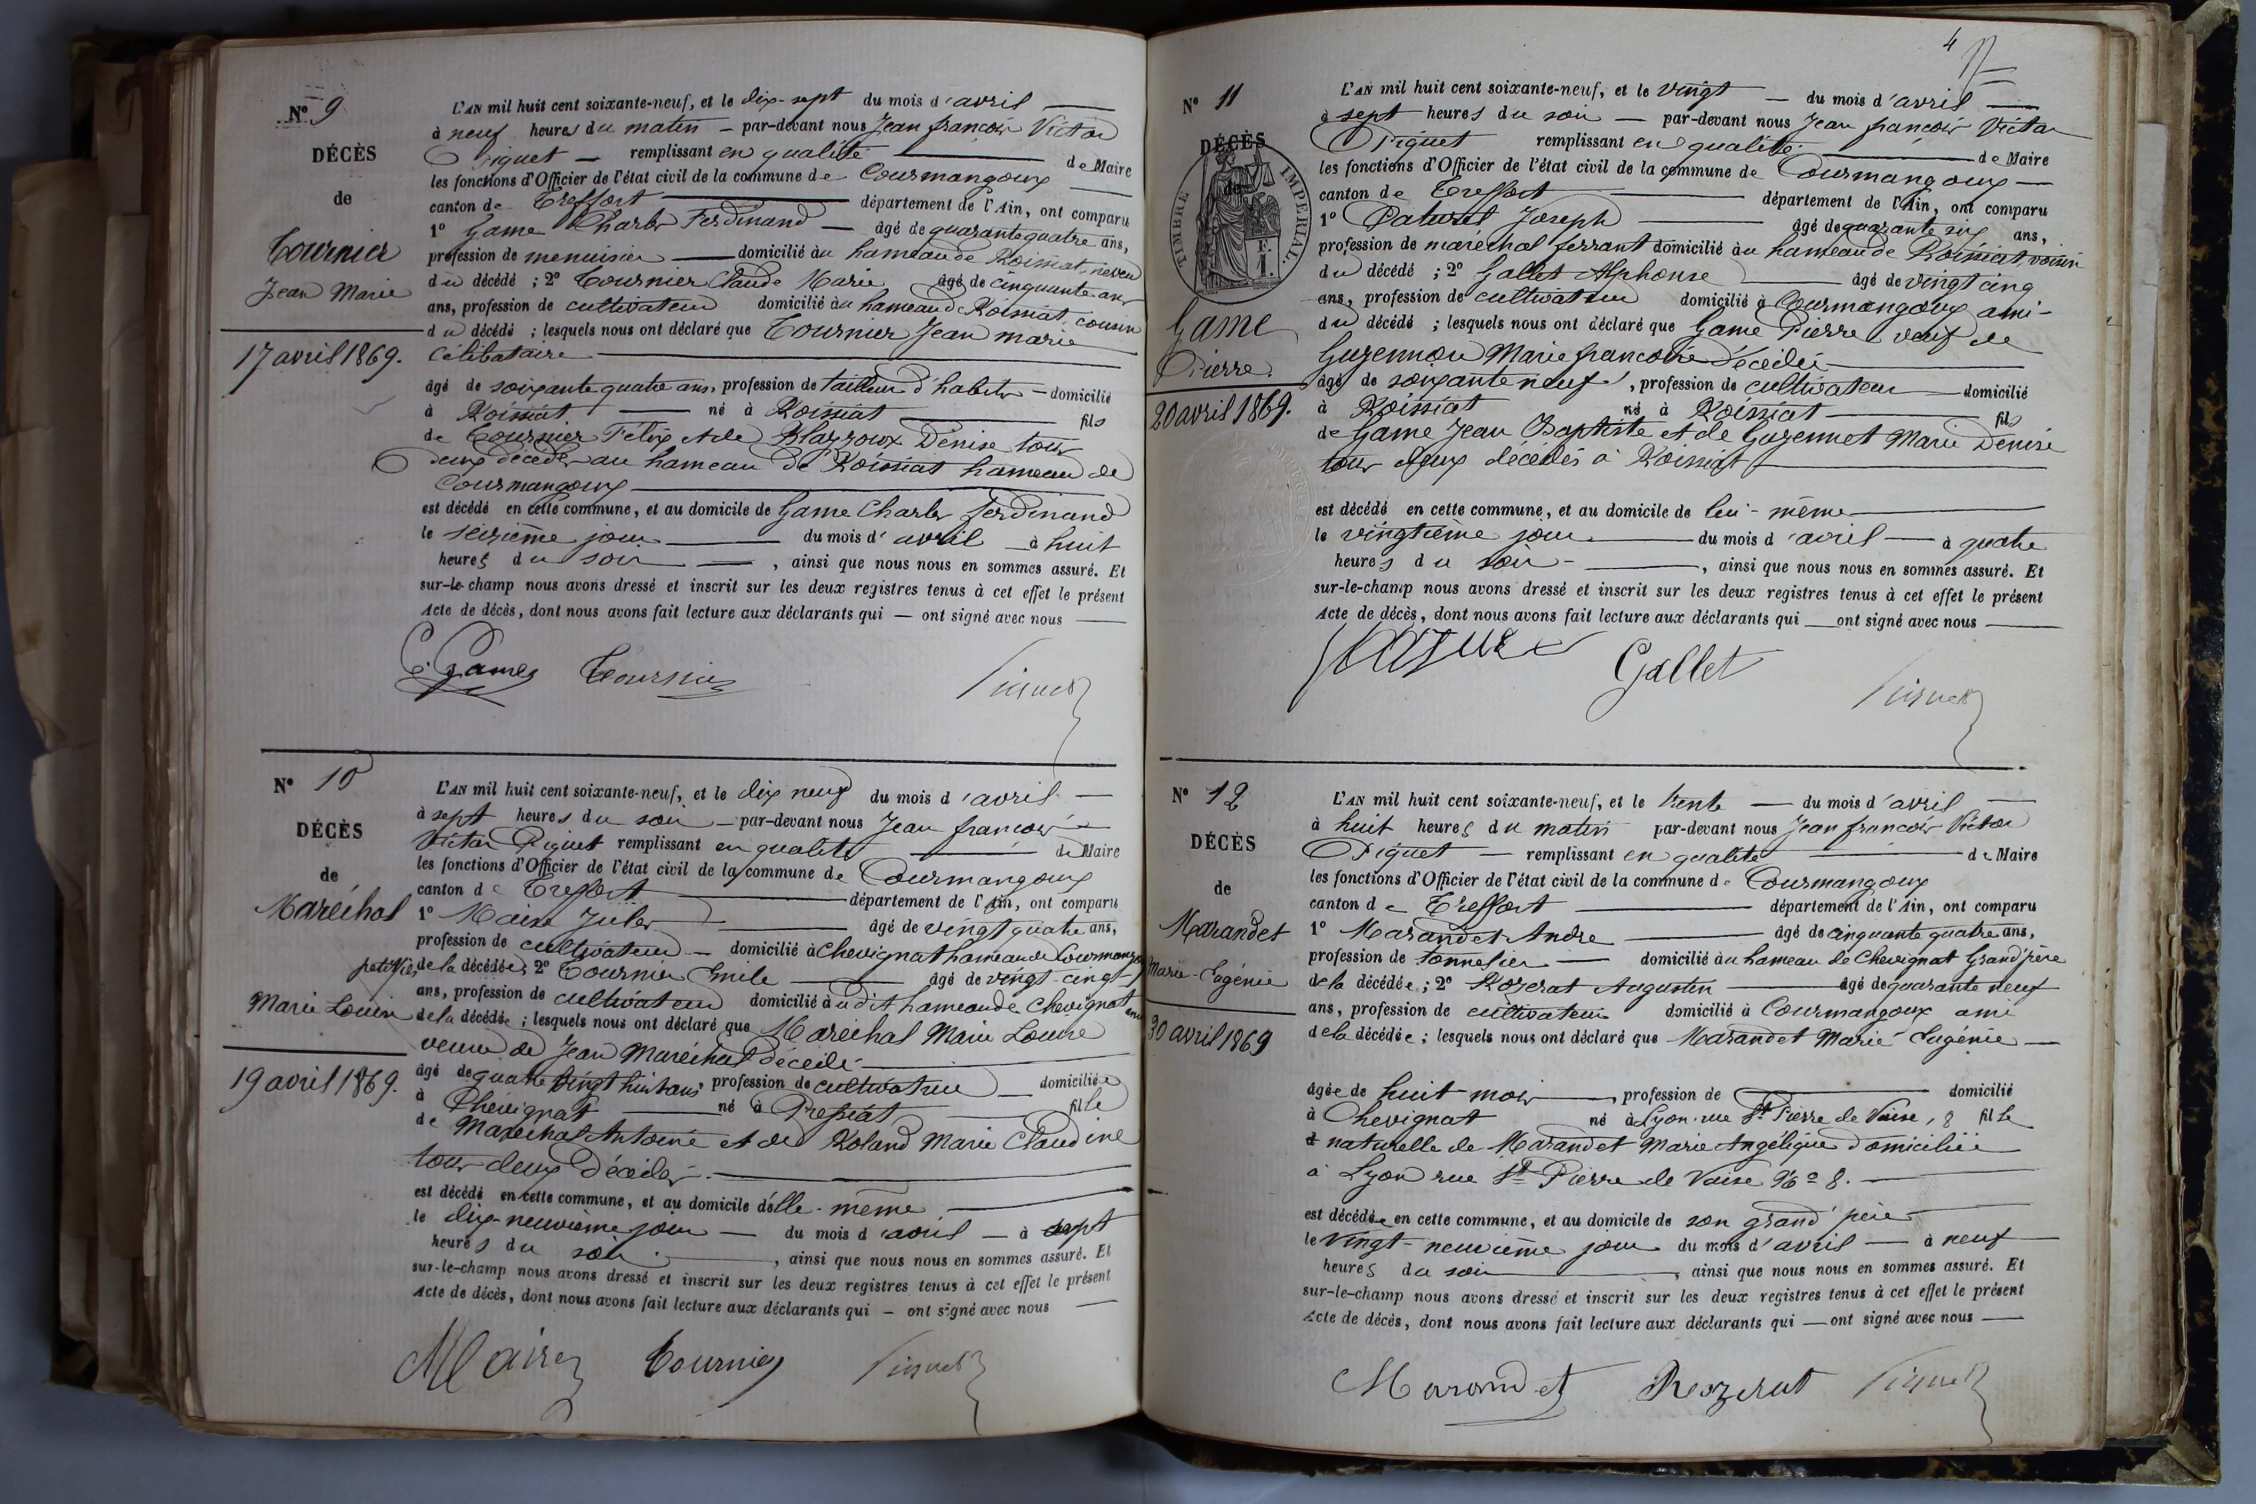 N° 9
DÉCÈS
de
Tournier
Jean Marie
17 avril 1869.
L'AN mil huit cent soixante-neuf, et le dix-sept du mois d'avril
à neuf heures du matin par-devant nous Jean françois Victor
Piguet remplissant en qualité de Maire
les fonctions d'Officier de l'état civil de la commune de Courmangoux
canton de Treffort département de l'Ain, ont comparu
1° Game Charles Ferdinand âgé de quarante quatre ans,
profession de menuisier domicilié au hameau de Roissiat, neveu
du décédé ; 2° Tournier Claude Marie âgé de cinquante ans
ans, profession de cultivateur domicilié au hameau de Roissiat, cousin
du décédé ; lesquels nous ont déclaré que Tournier Jean marie
Célibataire
âgé de soixante quatre ans, profession de tailleur d'habits domicilié
à Roissiat né à Roissiat fils
de Tournier Félix et de Blazroux Denise tous
deux décédés au hameau de Roissiat hameau de
Courmangoux
est décédé en cette commune, et au domicile de Game Charles ferdinand
le seizième jour du mois d'avril à huit
heures du soir , ainsi que nous nous en sommes assuré. Et
sur-le-champ nous avons dressé et inscrit sur les deux registres tenus à cet effet le présent
Acte de décès, dont nous avons fait lecture aux déclarants qui — ont signé avec nous
C. Game Tournier Piguet
N° 10
DÉCÈS
de
Maréchal
Marie Louise
19 avril 1869.
L'AN mil huit cent soixante-neuf, et le dix neuf du mois d'avril
à sept heures du soir par-devant nous Jean françois
Victor Piguet remplissant en qualité de Maire
les fonctions d'Officier de l'état civil de la commune de Courmangoux
canton de Treffort département de l'Ain, ont comparu
1° Maire Jules âgé de vingt quatre ans,
profession de cultivateur domicilié à Chevignat hameau de Courmangoux
petit fils de la décédée ; 2° Tournier Emile âgé de vingt-cinq
ans, profession de cultivateur domicilié au dit hameau de Chevignat ami
de la décédée ; lesquels nous ont déclaré que Maréchal Marie Louise
veuve de Jean Maréchal décédé
âgé de quatre vingt huit ans, profession de cultivateur domiciliée
à Chevignat né à Pressiat fille
de Maréchal Antoine et de Roland Marie Claudine
tous deux décédés
est décédé en cette commune, et au domicile d'elle-même
le dix-neuvième jour du mois d'avril à sept
heures du soir , ainsi que nous nous en sommes assuré. Et
sur-le-champ nous avons dressé et inscrit sur les deux registres tenus à cet effet le présent
Acte de décès, dont nous avons fait lecture aux déclarants qui — ont signé avec nous
Maire Tournier Piguet
4
N° 11
DÉCÈS
de
TIMBRE IMPERIAL.
1 F.
Game
Pierre.
20 avril 1869.
L'AN mil huit cent soixante-neuf, et le vingt du mois d'avril
à sept heures du soir par-devant nous Jean françois Victor
Piguet remplissant en qualité de Maire
les fonctions d'Officier de l'état civil de la commune de Courmangoux
canton de Treffort département de l'Ain, ont comparu
1° Paturet Joseph âgé de quarante six ans,
profession de maréchal ferrant domicilié au hameau de Roissiat, voisin
du décédé ; 2° Gallet Alphonse âgé de vingt cinq
ans, profession de cultivateur domicilié à Courmangoux ami
du décédé ; lesquels nous ont déclaré que Game Pierre veuf de
Guzennou Marie françoise Décédée
âgé de soixante neuf , profession de cultivateur domicilié
à Roissiat né à Roissiat fils
de Game Jean Baptiste et de Guzennet Marie Denise
tous deux décédés à Roissiat
est décédé en cette commune, et au domicile de lui-même
le vingtième jour du mois d'avril à quatre
heures du soir , ainsi que nous nous en sommes assuré. Et
sur-le-champ nous avons dressé et inscrit sur les deux registres tenus à cet effet le présent
Acte de décès, dont nous avons fait lecture aux déclarants qui — ont signé avec nous
Gallet Piguet
N° 12
DÉCÈS
de
Marandet
Marie-Eugénie
30 avril 1869
L'AN mil huit cent soixante-neuf, et le trente du mois d'avril
à huit heures du matin par-devant nous Jean françois Victor
Piguet remplissant en qualité de Maire
les fonctions d'Officier de l'état civil de la commune de Courmangoux
canton de Treffort département de l'Ain, ont comparu
1° Marandet Andre âgé de cinquante quatre ans,
profession de tonnelier domicilié au hameau de Chevignat Grand'père
de la décédée ; 2° Rozerat Augustin âgé de quarante neuf
ans, profession de cultivateur domicilié à Courmangoux ami
de la décédée ; lesquels nous ont déclaré que Marandet Marie Eugénie
âgée de huit mois , profession de domicilié
à Chevignat né à Lyon rue St Pierre de Vaise, 8 fille
naturelle de Marandet Marie Angélique domiciliée
à Lyon rue St Pierre de Vaise No 8.
est décédée en cette commune, et au domicile de son grand père
le vingt-neuvième jour du mois d'avril à neuf
heures du soir , ainsi que nous nous en sommes assuré. Et
sur-le-champ nous avons dressé et inscrit sur les deux registres tenus à cet effet le présent
Acte de décès, dont nous avons fait lecture aux déclarants qui — ont signé avec nous
Marandet Rozerat Piguet